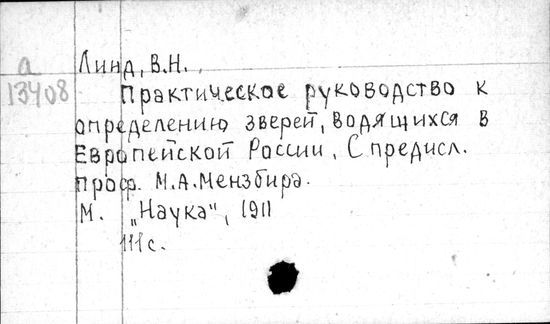 а
13408
Линд, В.Н.
Практическое руководство к
определению зверей, водящихся в
Европейской России. С предисл.
проф. М.А.Мензбира.
М. „Наука“, 1911
111 с.